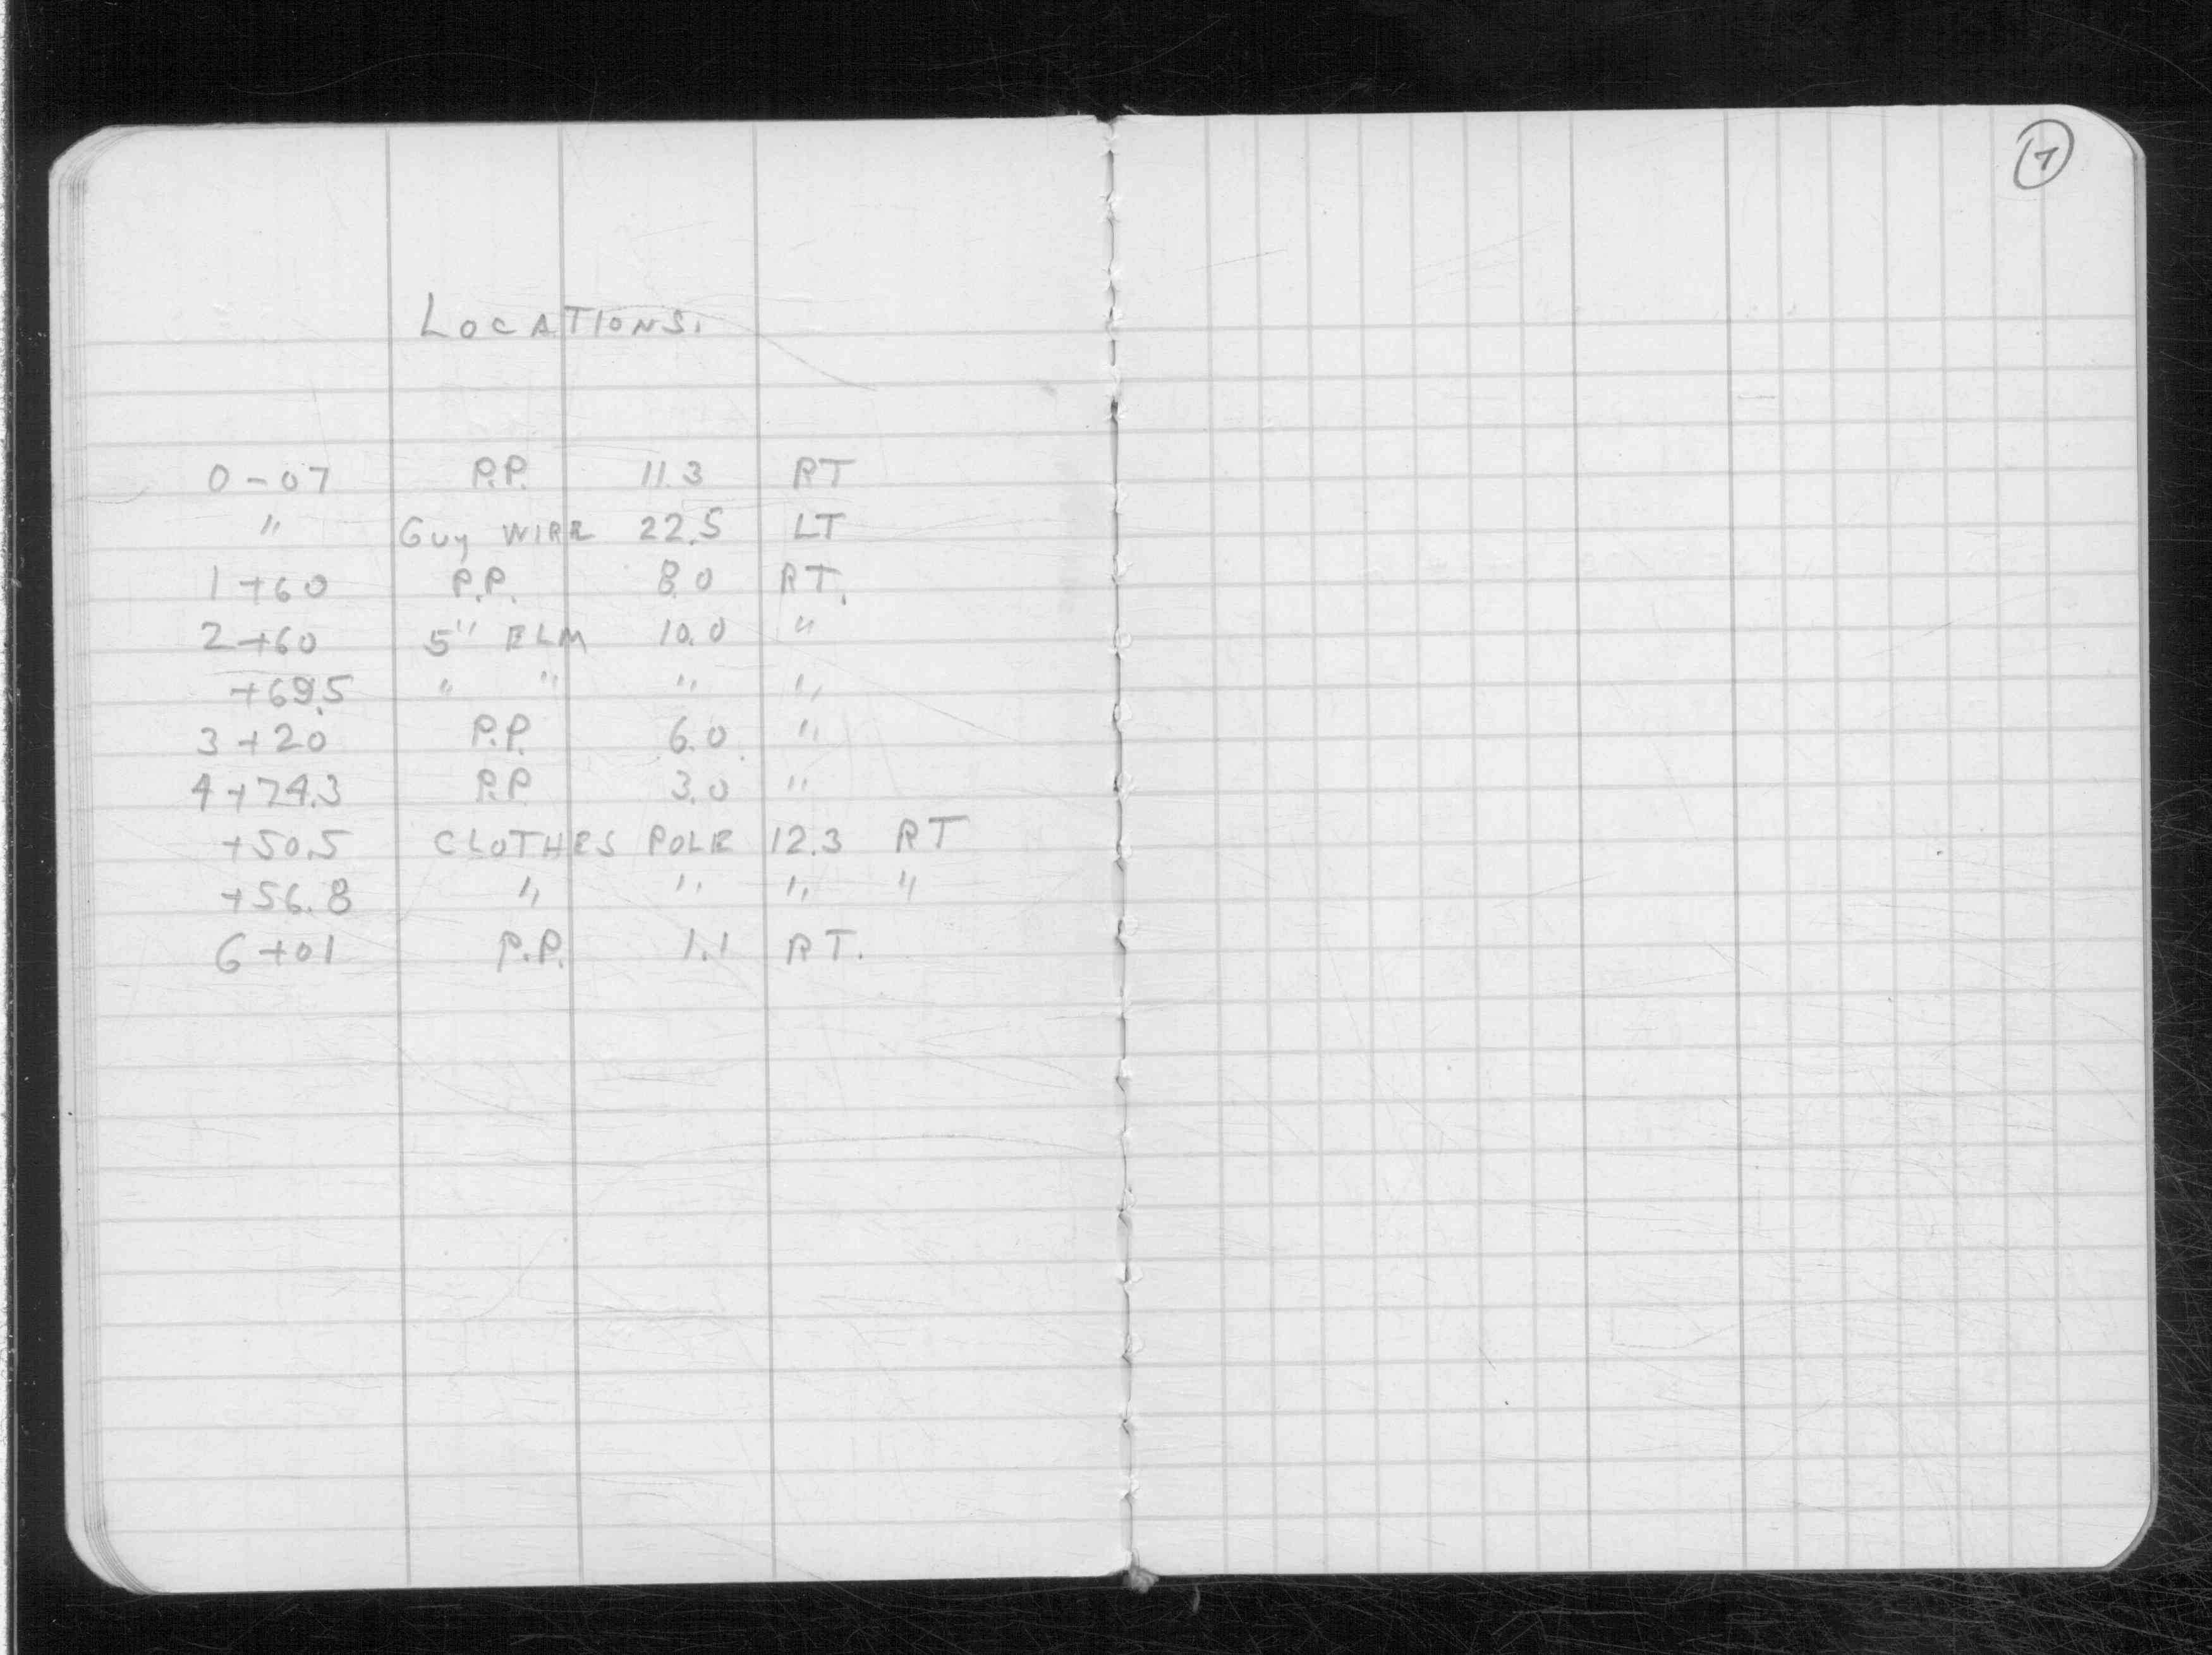 7
LOCATIONS.
0-07 P.P. 11.3 RT
" GUY WIRE 22.5 LT
1+60 P.P. 8.0 RT.
2+60 5" ELM 10.0 "
+69.5 " " " "
3+20 P.P. 6.0 "
4+74.3 P.P. 3.0 "
+50.5 CLOTHES POLE 12.3 RT
+56.8 " " " "
6+01 P.P. 1.1 RT.